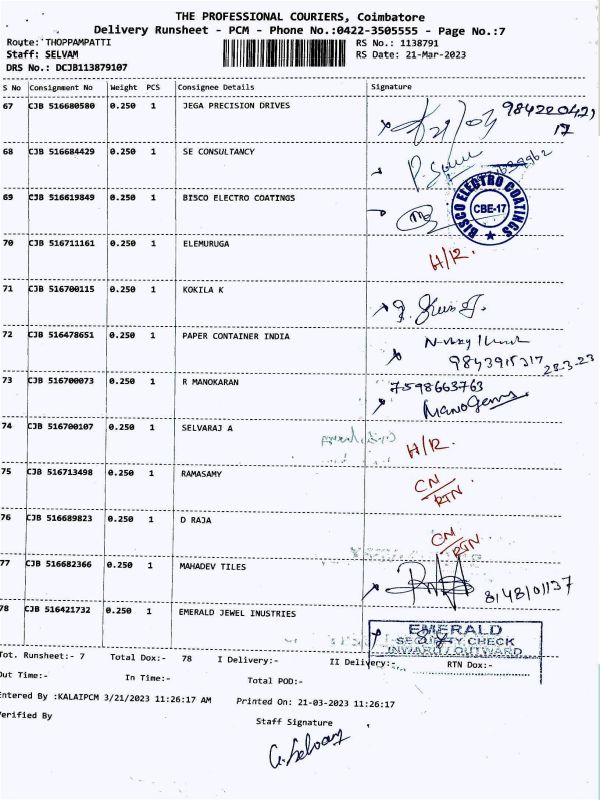 THE PROFESSIONAL COURIERS, Coimbatore
Delivery Runsheet - PCM - Phone No.:0422-3505555 - Page No.:7
Route: THOPPAMPATTI RS No.: 1138791
Staff: SELVAM RS Date: 21-Mar-2023
DRS No.: DCJB113879107
S No Consignment No Weight PCS Consignee Details Signature
67 CJB 516680580 0.250 1 JEGA PRECISION DRIVES
17
68 CJB 516684429 0.250 1 SE CONSULTANCY
69 CJB 516619849 0.250 1 BISCO ELECTRO COATINGS
BISCO ELECTRO COATINGS CBE-17
70 CJB 516711161 0.250 1 ELEMURUGA H/R.
71 CJB 516700115 0.250 1 KOKILA K
72 CJB 516478651 0.250 1 PAPER CONTAINER INDIA
73 CJB 516700073 0.250 1 R MANOKARAN 7598663763
74 CJB 516700107 0.250 1 SELVARAJ A H/R.
75 CJB 516713498 0.250 1 RAMASAMY CN/RTN
76 CJB 516689823 0.250 1 D RAJA CN/RTN
77 CJB 516682366 0.250 1 MAHADEV TILES 8148101137
78 CJB 516421732 0.250 1 EMERALD JEWEL INUSTRIES
EMERALD
SECURITY CHECK
INWARD / OUTWARD
Tot. Runsheet:- 7 Total Dox:- 78 I Delivery:- II Delivery:- RTN Dox:-
Out Time:- In Time:- Total POD:-
Entered By :KALAIPCM 3/21/2023 11:26:17 AM Printed On: 21-03-2023 11:26:17
Verified By Staff Signature
G. Selvam